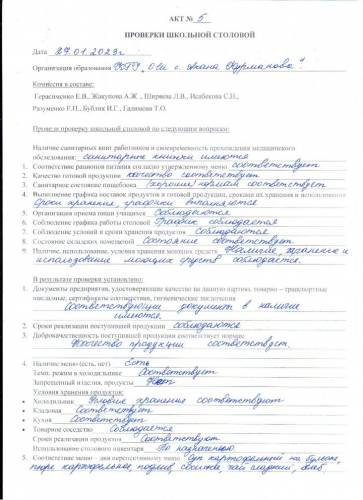 АКТ № 5
ПРОВЕРКИ ШКОЛЬНОЙ СТОЛОВОЙ
Дата 27.01.2023г
Организация образования КГУ „ОШ с. Жана Курманова".
Комиссия в составе:
Герасименко Е.В., Жакупова А.Ж., Ширяева Л.В., Исабекова С.Н.,
Разуменко Е.Н., Бублик И.Г., Галямова Т.О.
Провели проверку школьной столовой по следующим вопросам:
Наличие санитарных книг работников и своевременность прохождения медицинского
обследования: санитарные книжки имеются
1. Соответствие рациона питания согласно утвержденному меню соответствует.
2. Качество готовой продукции качество соответствует.
3. Санитарное состояние пищеблока (хорошее) нормам соответствует
4. Выполнение графика поставок продуктов и готовой продукции, сроками их хранения и использования
Сроки хранения, графики выполняются
5. Организация приема пищи учащимися Соблюдаются
6. Соблюдение графика работы столовой График соблюдается
7. Соблюдение условий и сроки хранения продуктов Соблюдаются
8. Состояние складских помещений Состояние соответствует.
9. Наличие, использование, условия хранения моющих средств Наличие, хранение и
использование моющих средств соблюдается.
В результате проверки установлено:
1. Документы предприятия, удостоверяющие качество на данную партию, товарно – транспортные
накладные, сертификаты соответствия, гигиенические заключения
Соответствующий документ в наличие
имеются.
2. Сроки реализации поступившей продукции соблюдаются
3. Доброкачественность поступившей продукции соответствует норме
Качество продукции соответствует.
4. Наличие меню (есть, нет) Есть
Темп. режим в холодильнике Соответствует
Запрещенный изделия, продукты Нет
Условия хранения продуктов:
• Холодильник Условие хранения соответствуют
• Кладовая Соответствует
• Кухня Соответствует
• Товарное соседство Соблюдается
Сроки реализации продуктов Соответствуют
Использование столового инвентаря По назначению
5. Соответствие меню дня перспективному меню Суп картофельный на бульоне,
пюре картофельное, подлив, свекла, чай сладкий, хлеб